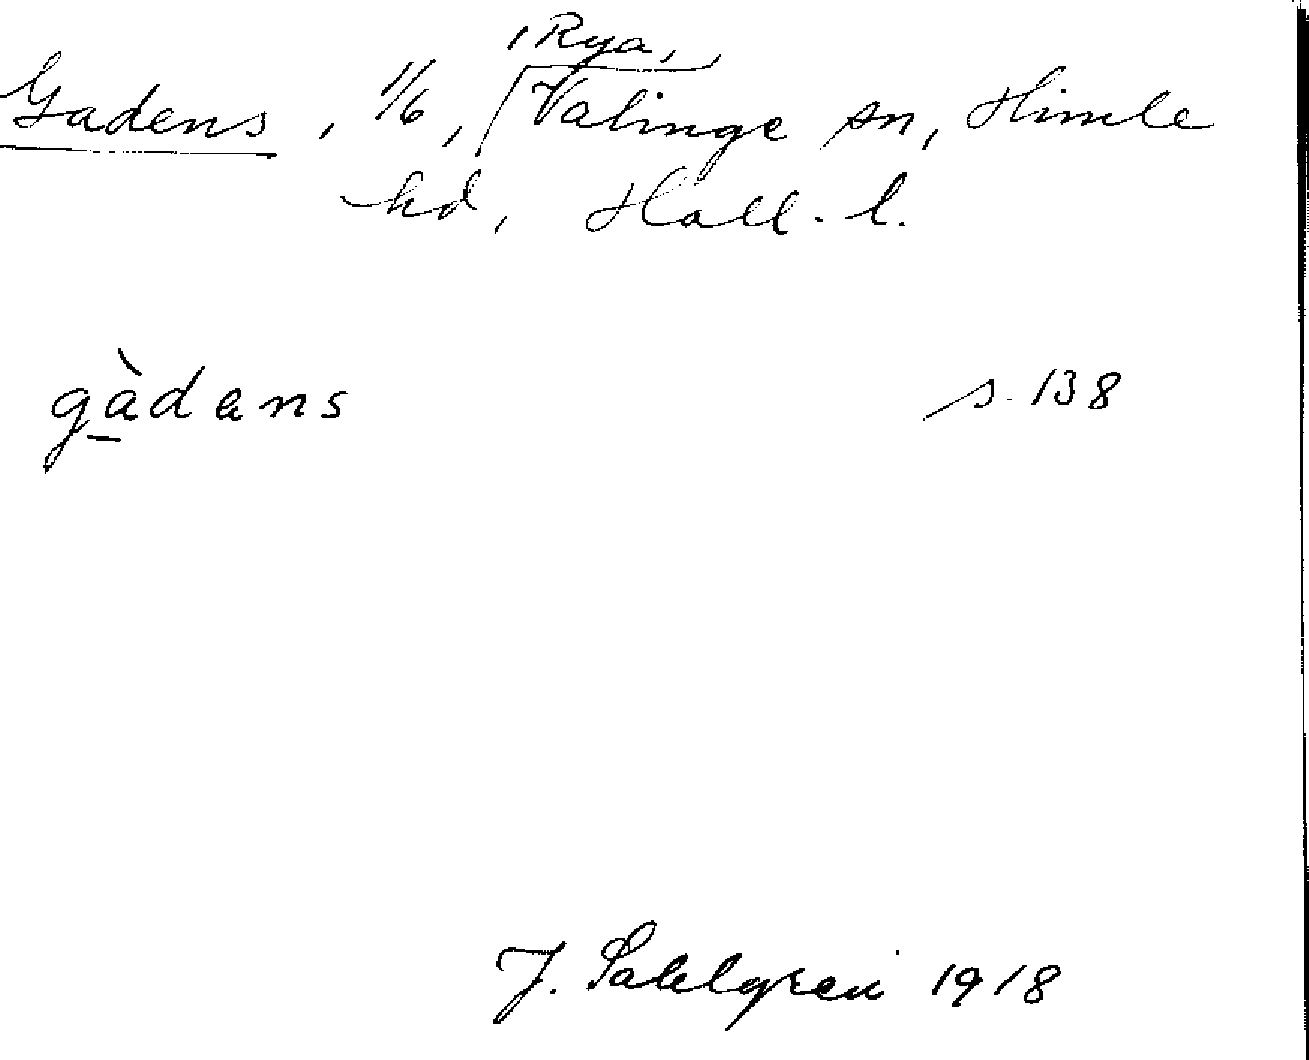 , Rya,
Gadens, 1/6, Valinge sn, Himle
hd, Hall. l.
gàdans s. 138
J. Sahlgren 1918